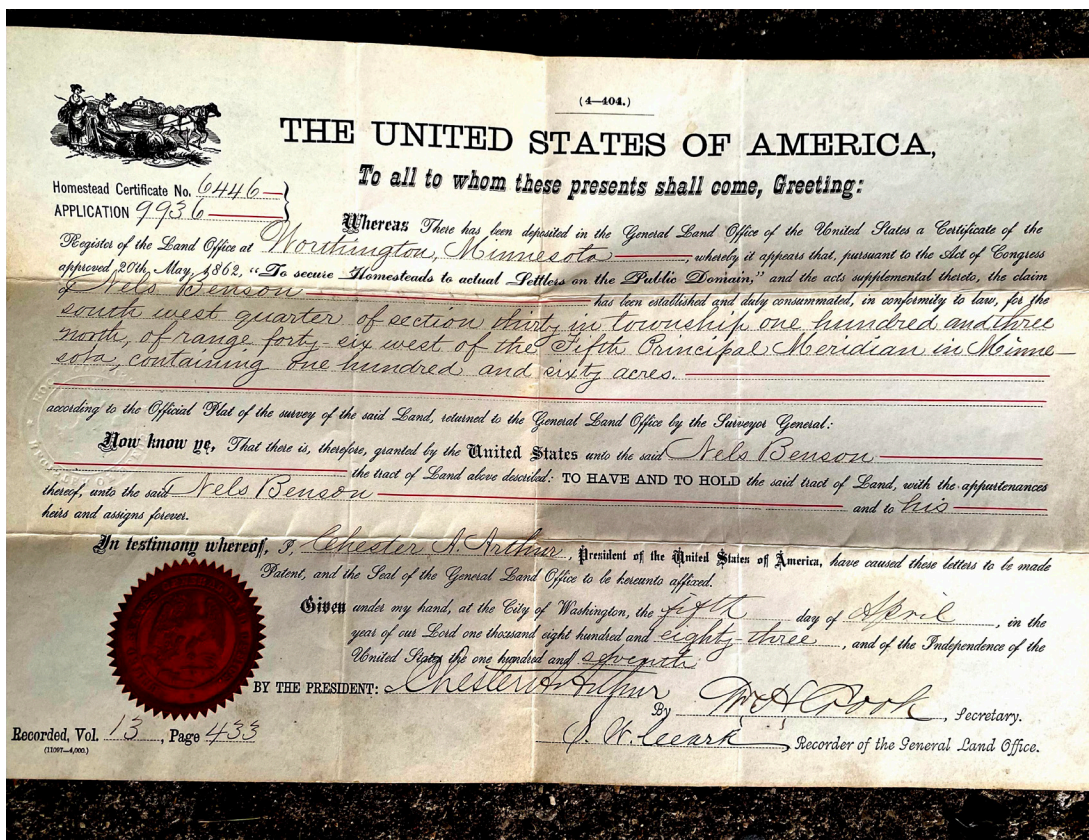 (4—404.)
THE UNITED STATES OF AMERICA,
To all to whom these presents shall come, Greeting:
Homestead Certificate No. 6446
APPLICATION 9936
Whereas There has been deposited in the General Land Office of the United States a Certificate of the
Register of the Land Office at Worthington, Minnesota, whereby it appears that, pursuant to the Act of Congress
approved 20th May, 1862, "To secure Homesteads to actual Settlers on the Public Domain," and the acts supplemental thereto, the claim
of Nels Benson has been established and duly consummated, in conformity to law, for the
south west quarter of section thirty in township one hundred and three
north, of range forty-six west of the Fifth Principal Meridian in Minne-
sota, containing one hundred and sixty acres.
according to the Official Plat of the survey of the said Land, returned to the General Land Office by the Surveyor General:
Now know ye, That there is, therefore, granted by the United States unto the said Nels Benson
the tract of Land above described: TO HAVE AND TO HOLD the said tract of Land, with the appurtenances
thereof, unto the said Nels Benson and to his
heirs and assigns forever.
In testimony whereof, I, Chester A. Arthur, President of the United States of America, have caused these letters to be made
Patent, and the Seal of the General Land Office to be hereunto affixed.
Given under my hand, at the City of Washington, the fifth day of April, in the
year of our Lord one thousand eight hundred and eighty-three, and of the Independence of the
United States the one hundred and seventh
BY THE PRESIDENT: Chester A. Arthur
By Wm H Crook, Secretary.
Recorded, Vol. 13, Page 433
S. W. Clark, Recorder of the General Land Office.
(11097—4,000.)